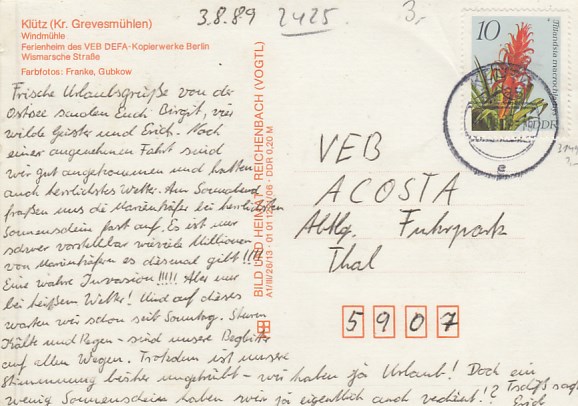 Klütz (Kr. Grevesmühlen)
Windmühle
Ferienheim des VEB DEFA-Kopierwerke Berlin
Wismarsche Straße
Farbfotos: Franke, Gubkow
3.8.89
2425
3,
10
Tillandsia macrochlamys
DDR
e
Frische Urlaubsgrüße von der
Ostsee senden Euch Birgit, vier
wilde Geister und Erich. Nach
einer angenehmen Fahrt sind
wir gut angekommen und hatten
auch herrlichstes Wetter. Am Sonnabend
fraßen uns die Marienkäfer bei herrlichstem
Sonnenschein fast auf. Es ist nur
schwer vorstellbar wieviele Millionen
von Marienkäfern es diesmal gibt!!!!
Eine wahre Invasion!!!!! Aber nur
bei heißem Wetter! Und auf dieses
warten wir schon seit Sonntag. Sturm
Kälte und Regen - sind unsere Begleiter
auf allen Wegen. Trotzdem ist unsere
Stimmung bisher ungetrübt - wir haben ja Urlaub! Doch ein
wenig Sonnenschein haben wir ja eigentlich auch verdient!? Tschüß sagt
Erich
BILD UND HEIMAT REICHENBACH (VOGTL)
A1/III/26/13 01 01 12 /06 DDR 0,20 M
VEB
ACOSTA
Abtlg. Fuhrpark
Thal
5907